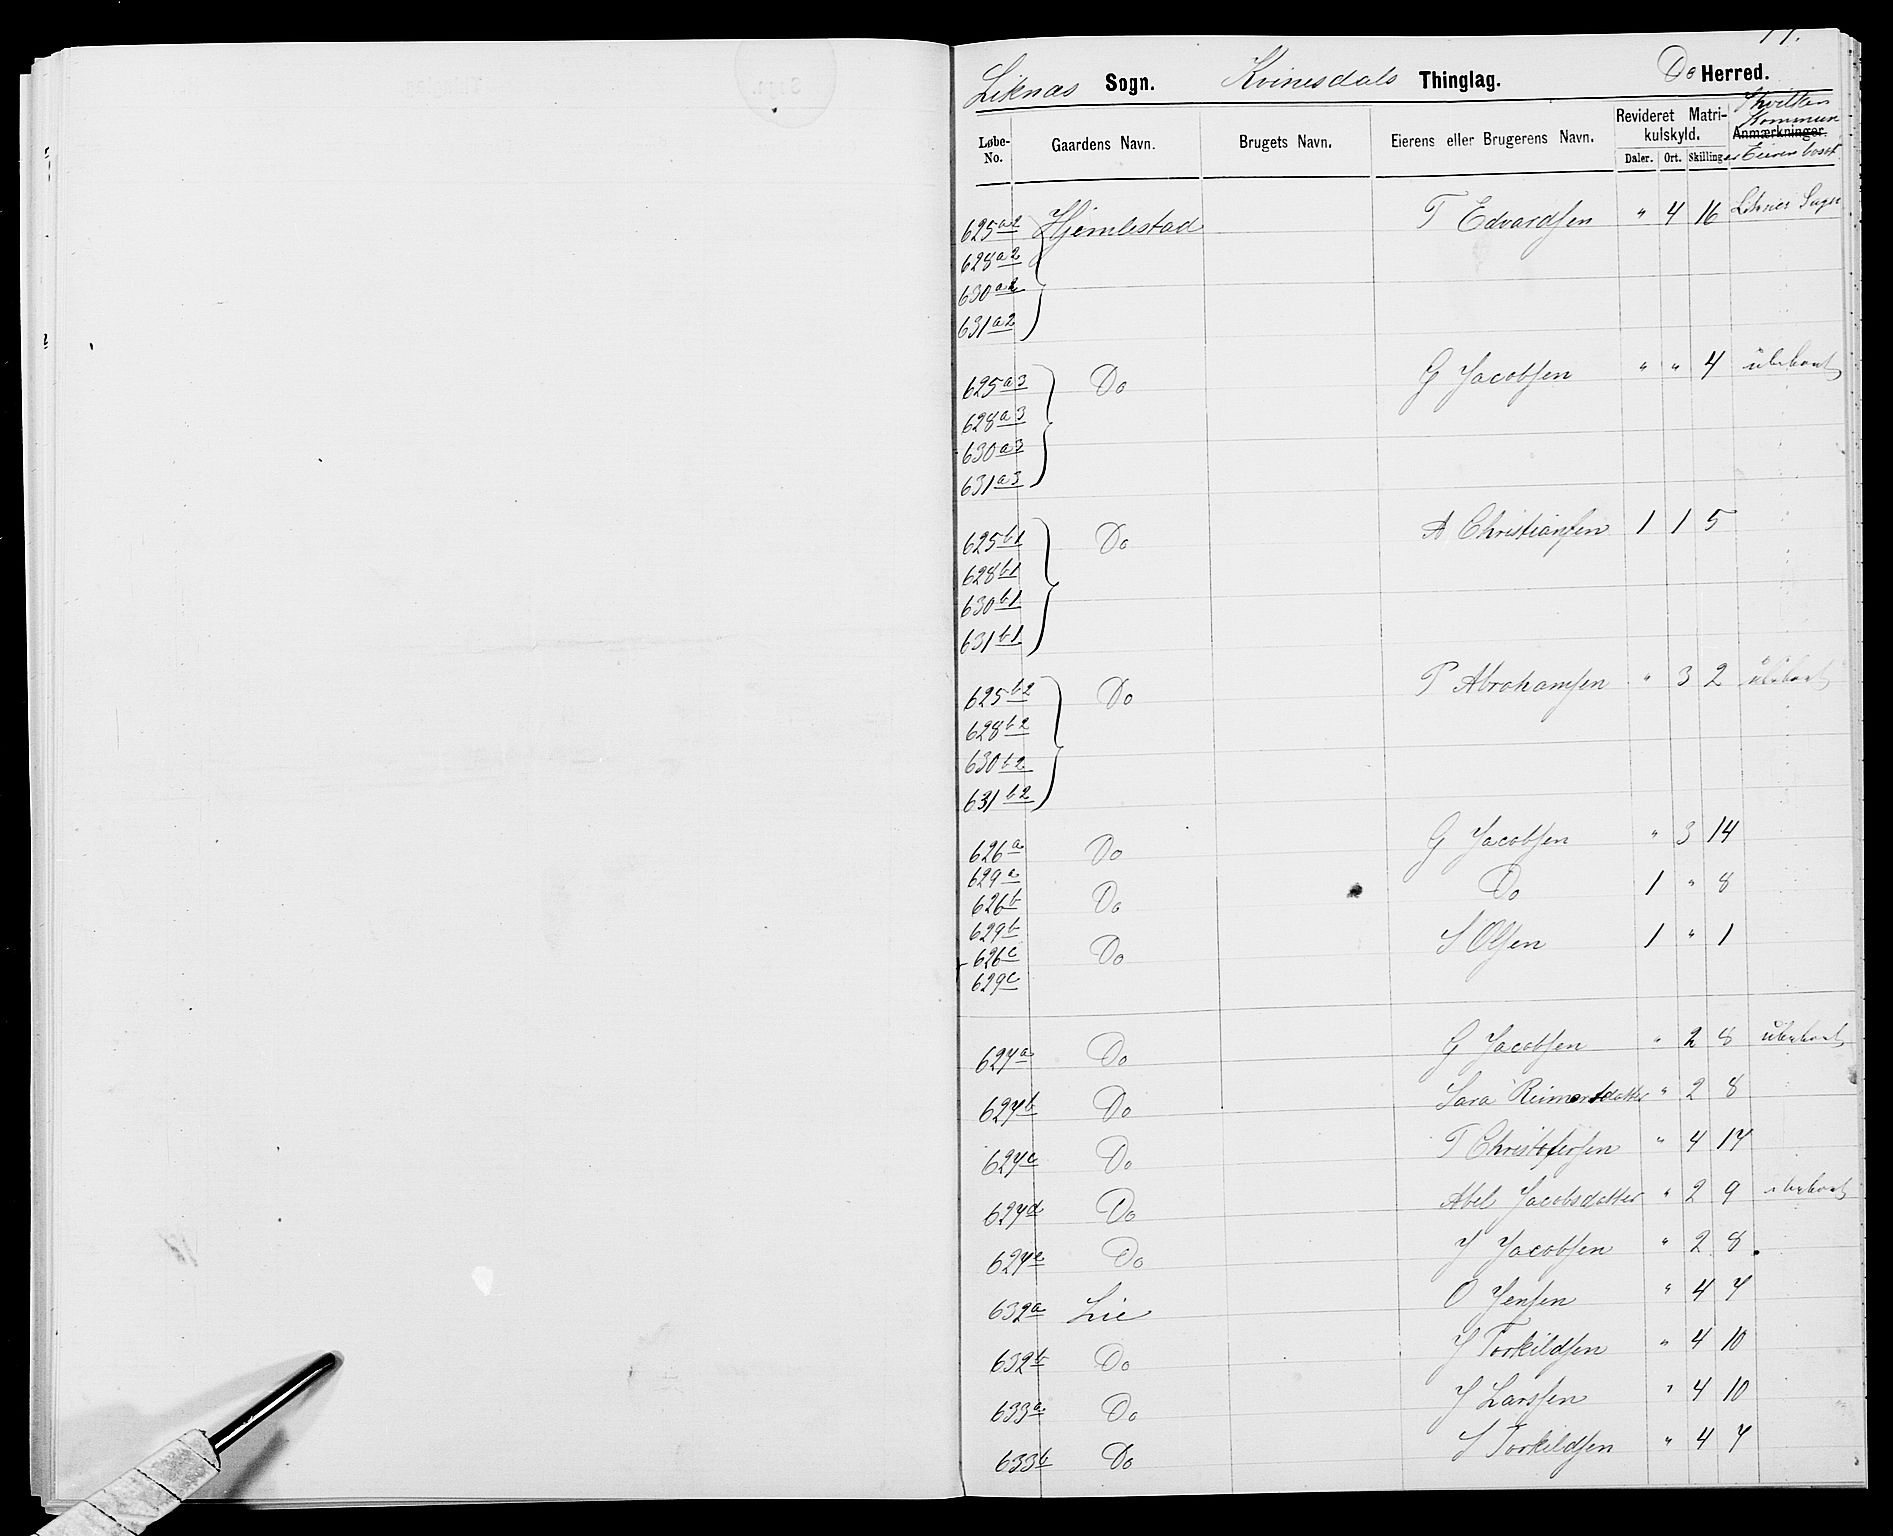 Liknæs Sogn. Kvinesdals Thinglag. Do Herred.
Løbe-No. Gaardens Navn. Brugets Navn. Eierens eller Brugerens Navn. Revideret Matrikulskyld. Daler. Ort. Skilling. I hvilken Kommune Anmærkninger. er Eieren bosat
625a2 Hjemlestad T Edvardsen " 4 16 Liknæs Sogn
628a2
630a2
631a2
625a3 Do G Jacobsen " " 4 ubeboet
628a3
630a3
631a3
625b1 Do A Christiansen 1 1 5
628b1
630b1
631b1
625b2 Do P Abrahamsen " 3 2 ubeboet
628b2
630b2
631b2
626a Do G Jacobsen " 3 14
629a
626b Do Do 1 " 8
629b
626c Do S Olsen 1 " 1
629c
627a Do G Jacobsen " 2 8 ubeboet
627b Do Sara Reimertsdatter " 2 8
627c Do T Christofersen " 4 17
627d Do Abel Jacobsdatter " 2 9 ubeboet
627e Do J Jacobsen " 2 8
632a Lie O Jensen " 4 7
632b Do J Torkildsen " 4 10
633a Do J Larssen " 4 10
633b Do S Torkildsen " 4 7